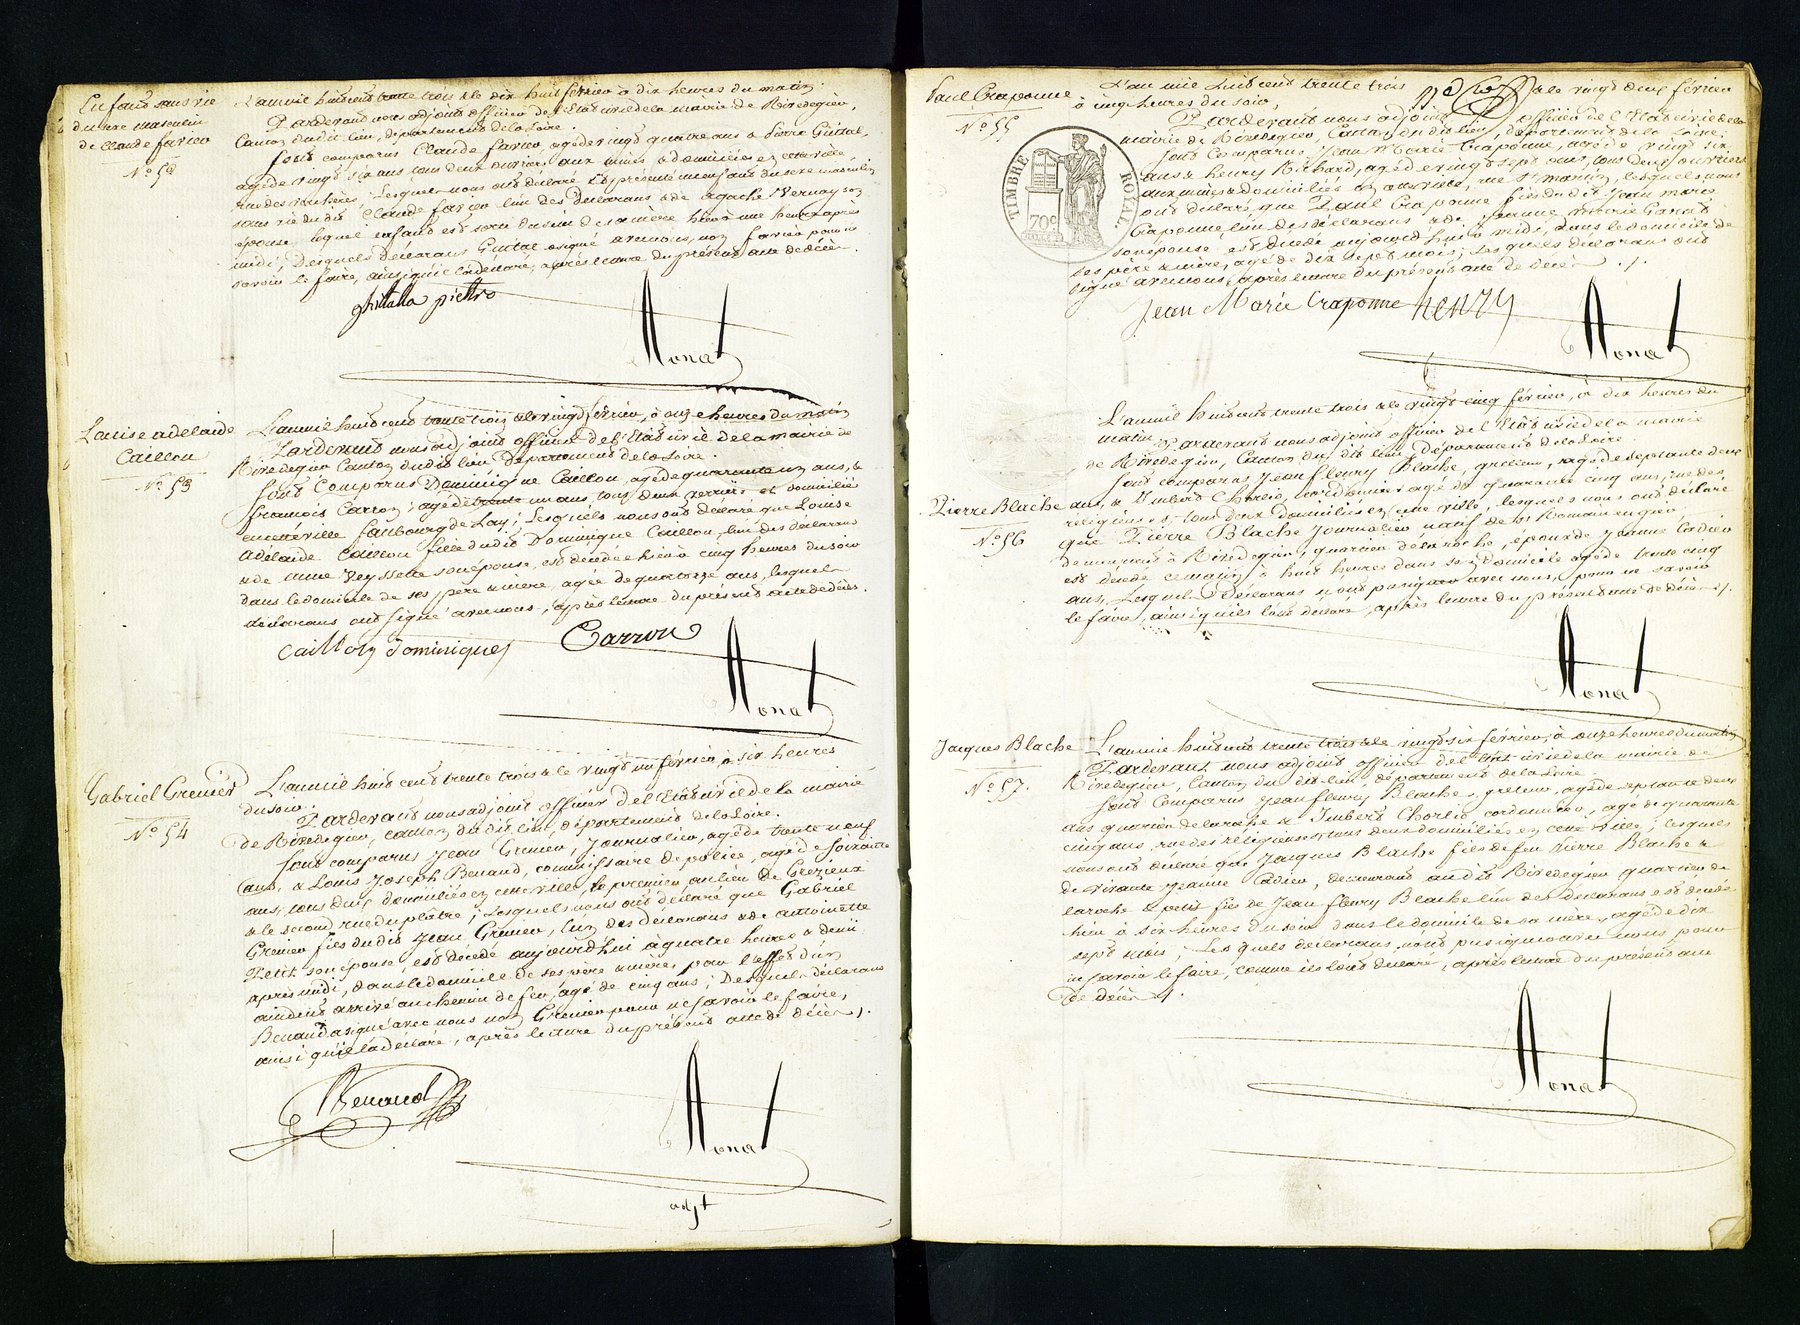 Enfant sans vie
du sexe masculin
de Claude favier
N° 52
L'an mil huit cent trente trois & le dix huit février à dix heures du matin.
Pardevant nous adjoint officier de l'Etat civil de la mairie de Rivedegier,
Canton dudit lieu, département de la Loire.
sont comparus Claude favier, agé de vingt quatre ans & pierre Guittal,
agé de vingt six ans tous deux ouvriers aux mines & domiciliés en cette ville
rue des Lesquels nous ont déclaré & présenté un enfant du sexe masculin
sans vie du dit Claude favier l'un des déclarans & de agathe Vernay son
épouse lequel enfant est sorti du sein de sa mère hier à une heure après
midi, Desquels déclarans Guittal a signé avec nous, non favier pour ne
savoir le faire, ainsi qu'il l'a déclaré, après lecture du présent acte de décès.
ghittalla piettro
Monat
Louise adelaide
Caillon
N° 53
L'an mil huit cent trente trois & le vingt février, à onze heures du matin
Pardevant nous adjoint officier de l'Etat civil de la mairie de
Rivedegier Canton dudit lieu Département de la Loire.
sont Comparus Dominique Caillon, agé de quarante un ans, &
francois Carron, agé de trente un ans, tous deux verriers et domiciliés
en cette ville faubourg de Lay; Lesquels nous ont déclaré que Louise
Adélaïde Caillon fille dudit Dominique Caillon, l'un des déclarans
& de anne Veyssette son épouse, est décédée hier à cinq heures du soir
dans le domicile de ses père & mère, agée de quatorze ans, lesquels
déclarans ont signé avec nous, après lecture du présent acte de décès.
Caillon dominique
Carron
Monat
Gabriel Grenier
N° 54
L'an mil huit cent trente trois & le vingt un février, à six heures
du soir.
Pardevant nous adjoint officier de l'Etat civil de la mairie
de Rivedegier, canton du dit lieu, département de la Loire.
sont comparus Jean Grenier, journalier, agé de trente neuf
ans, & Louis Joseph Benaud, commissaire de police, agé de soixante
ans, tous deux domiciliés en cette ville, le premier au lieu de Grezieux
& le second rue du plâtre; Lesquels nous ont déclaré que Gabriel
Grenier fils du dit Jean Grenier, l'un des déclarans & de antoinette
Petit son épouse, est décédé aujourd'hui à quatre heures & demi
après midi, dans le domicile de ses père & mère, par l'effet d'un
accident arrivé au chemin de fer, agé de cinq ans; Desquels déclarans
Benaud a signé avec nous non Grenier pour ne savoir le faire,
ainsi qu'il l'a déclaré, après lecture du présent acte de décès.
Benaud
Monat
adjt
Paul Craponne
N° 55
TIMBRE ROYAL.
70c
L'an mil huit cent trente trois & le vingt deux février
à cinq heures du soir,
Pardevant nous adjoint officier de l'Etat civil de la
mairie de Rivedegier, Canton du dit lieu, département de la Loire.
sont Comparus Jean Marie Craponne, agé de vingt six
ans & henry Richard, agé de vingt sept ans, tous deux ouvriers
aux mines & domiciliés en cette ville, rue St martin, lesquels nous
ont déclaré que Paul Craponne fils du dit Jean Marie
Craponne l'un des déclarans & de Jeanne Marie
son épouse est décédé aujourd'hui à midi, dans le domicile de
ses père & mère, agé de dix sept mois, Lesquels déclarans ont
signé avec nous, après lecture du présent acte de décès.
Jean Marie Craponne henry
Monat
Pierre Blache
N° 56
L'an mil huit cent trente trois & le vingt cinq février, à dix heures du
matin
Pardevant nous adjoint officier de l'Etat civil de la mairie
de Rivedegier, Canton du dit lieu, Département de la Loire.
sont comparus Jean fleury Blache, grêleur, agé de septante deux
ans, & Imbert Chorlio, cordonnier agé de quarante cinq ans, rue des
religieuses, tous deux domiciliés en cette ville, lesquels nous ont déclaré
que Pierre Blache journalier natif de St Romain en gier,
demeurant à Rivedegier, quartier de la roche, époux de Jeanne Cadieu
est décédé ce matin à huit heures dans son domicile agé de trente cinq
ans, Lesquels déclarans n'ont pu signer avec nous, pour ne savoir
le faire, ainsi qu'ils l'ont déclaré, après lecture du présent acte de décès.
Monat
Jacques Blache
N° 57.
L'an mil huit cent trente trois & le vingt six février, à onze heures du matin
Pardevant nous adjoint officier de l'Etat civil de la mairie de
Rivedegier, Canton du dit lieu, département de la Loire.
sont Comparus Jean fleury Blache, grêleur, agé de septante deux
ans quartier de la roche & Imbert Chorlio cordonnier, agé de quarante
cinq ans, rue des religieuses, tous deux domiciliés en cette ville, lesquels
nous ont déclaré que Jacques Blache fils de feu Pierre Blache &
de vivante Jeanne Cadieu, demeurant au dit Rivedegier quartier de
laroche & petit fils de Jean fleury Blache l'un des déclarans est décédé
hier à six heures du soir dans le domicile de sa mère, agé de dix
sept mois, Lesquels déclarans n'ont pu signer avec nous pour
ne savoir le faire, comme ils l'ont déclaré, après lecture du présent acte
de décès.
Monat